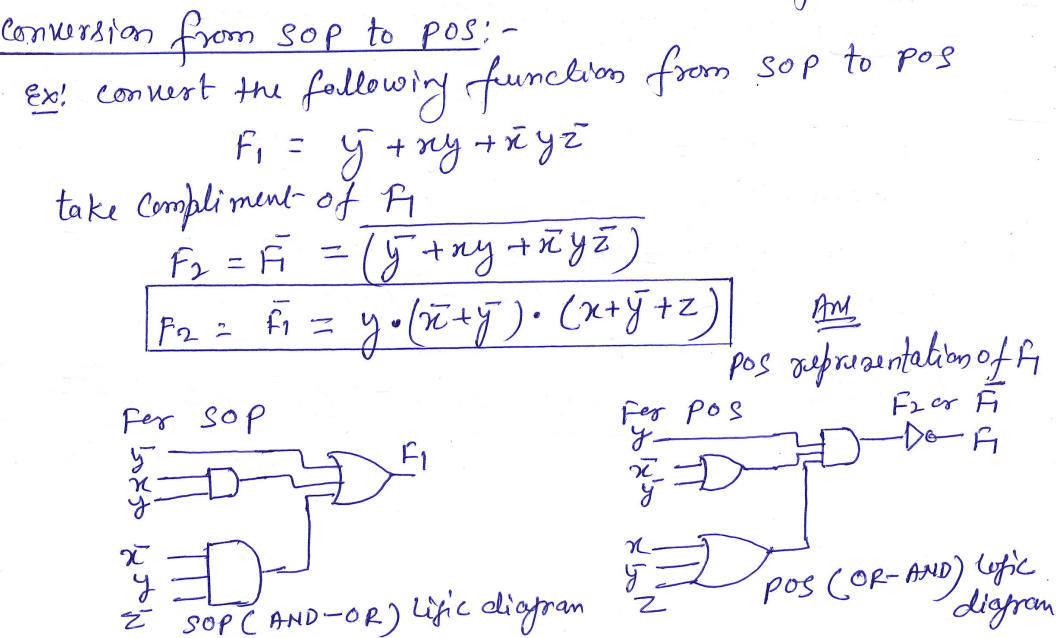 Conversion from SOP to POS:-
Ex! convert the following function from SOP to POS
F₁ = ȳ + xy + x̄yz̄
take Compliment of F₁
F₂ = F̄₁ = \overline{(ȳ + xy + x̄yz̄)}
F₂ = F̄₁ = y·(x̄+ȳ)·(x+ȳ+z)
Ans
POS representation of F₁
For SOP
ȳ
x
y
F₁
x̄
y
z̄
SOP (AND-OR) Logic diagram
For POS
F₂ or F̄₁
y
F₁
x̄
ȳ
x
ȳ
z
POS (OR-AND) Logic
diagram